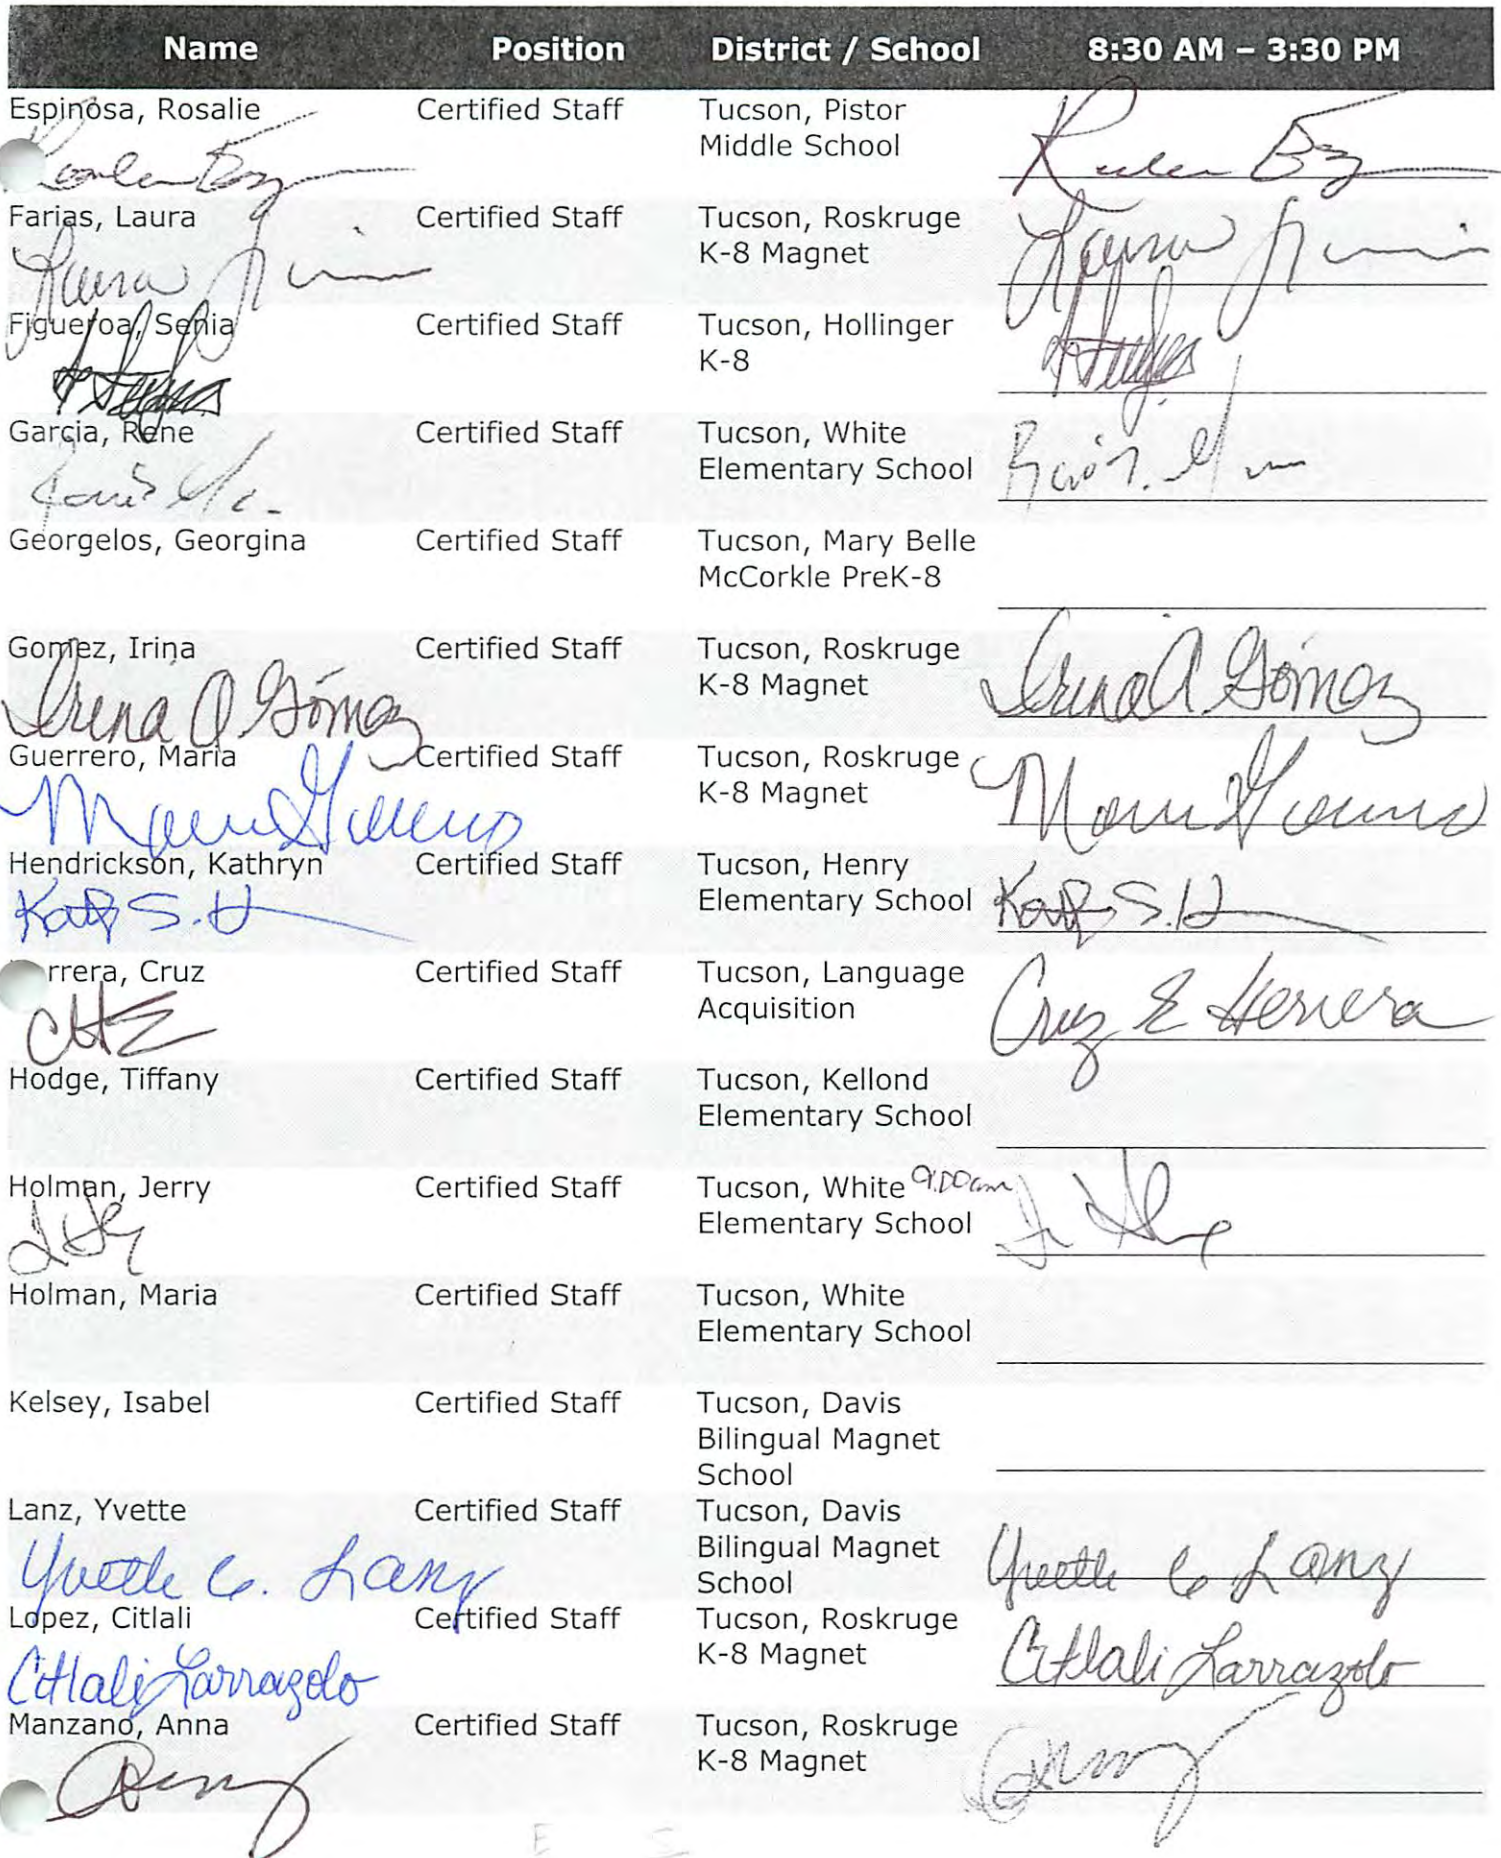 Name Position District / School 8:30 AM – 3:30 PM
Espinosa, Rosalie Certified Staff Tucson, Pistor
Middle School
Farias, Laura Certified Staff Tucson, Roskruge
K-8 Magnet
Laura Laura
Figueroa, Senia Certified Staff Tucson, Hollinger
K-8
Garcia, Rene Certified Staff Tucson, White
Elementary School
Georgelos, Georgina Certified Staff Tucson, Mary Belle
McCorkle PreK-8
Gomez, Irina Certified Staff Tucson, Roskruge
K-8 Magnet
Irina A Gómez Irina A. Gómez
Guerrero, Maria Certified Staff Tucson, Roskruge
K-8 Magnet
Maria Guerrero Maria Guerrero
Hendrickson, Kathryn Certified Staff Tucson, Henry
Elementary School
S. H S. H
rrera, Cruz Certified Staff Tucson, Language
Acquisition
Cruz E Herrera
Hodge, Tiffany Certified Staff Tucson, Kellond
Elementary School
Holman, Jerry Certified Staff Tucson, White 9:00am
Elementary School
Holman, Maria Certified Staff Tucson, White
Elementary School
Kelsey, Isabel Certified Staff Tucson, Davis
Bilingual Magnet
School
Lanz, Yvette Certified Staff Tucson, Davis
Bilingual Magnet
School
Yvette C. Lanz Yvette C Lanz
Lopez, Citlali Certified Staff Tucson, Roskruge
K-8 Magnet
Citlali Larrazolo Citlali Larrazolo
Manzano, Anna Certified Staff Tucson, Roskruge
K-8 Magnet
E S